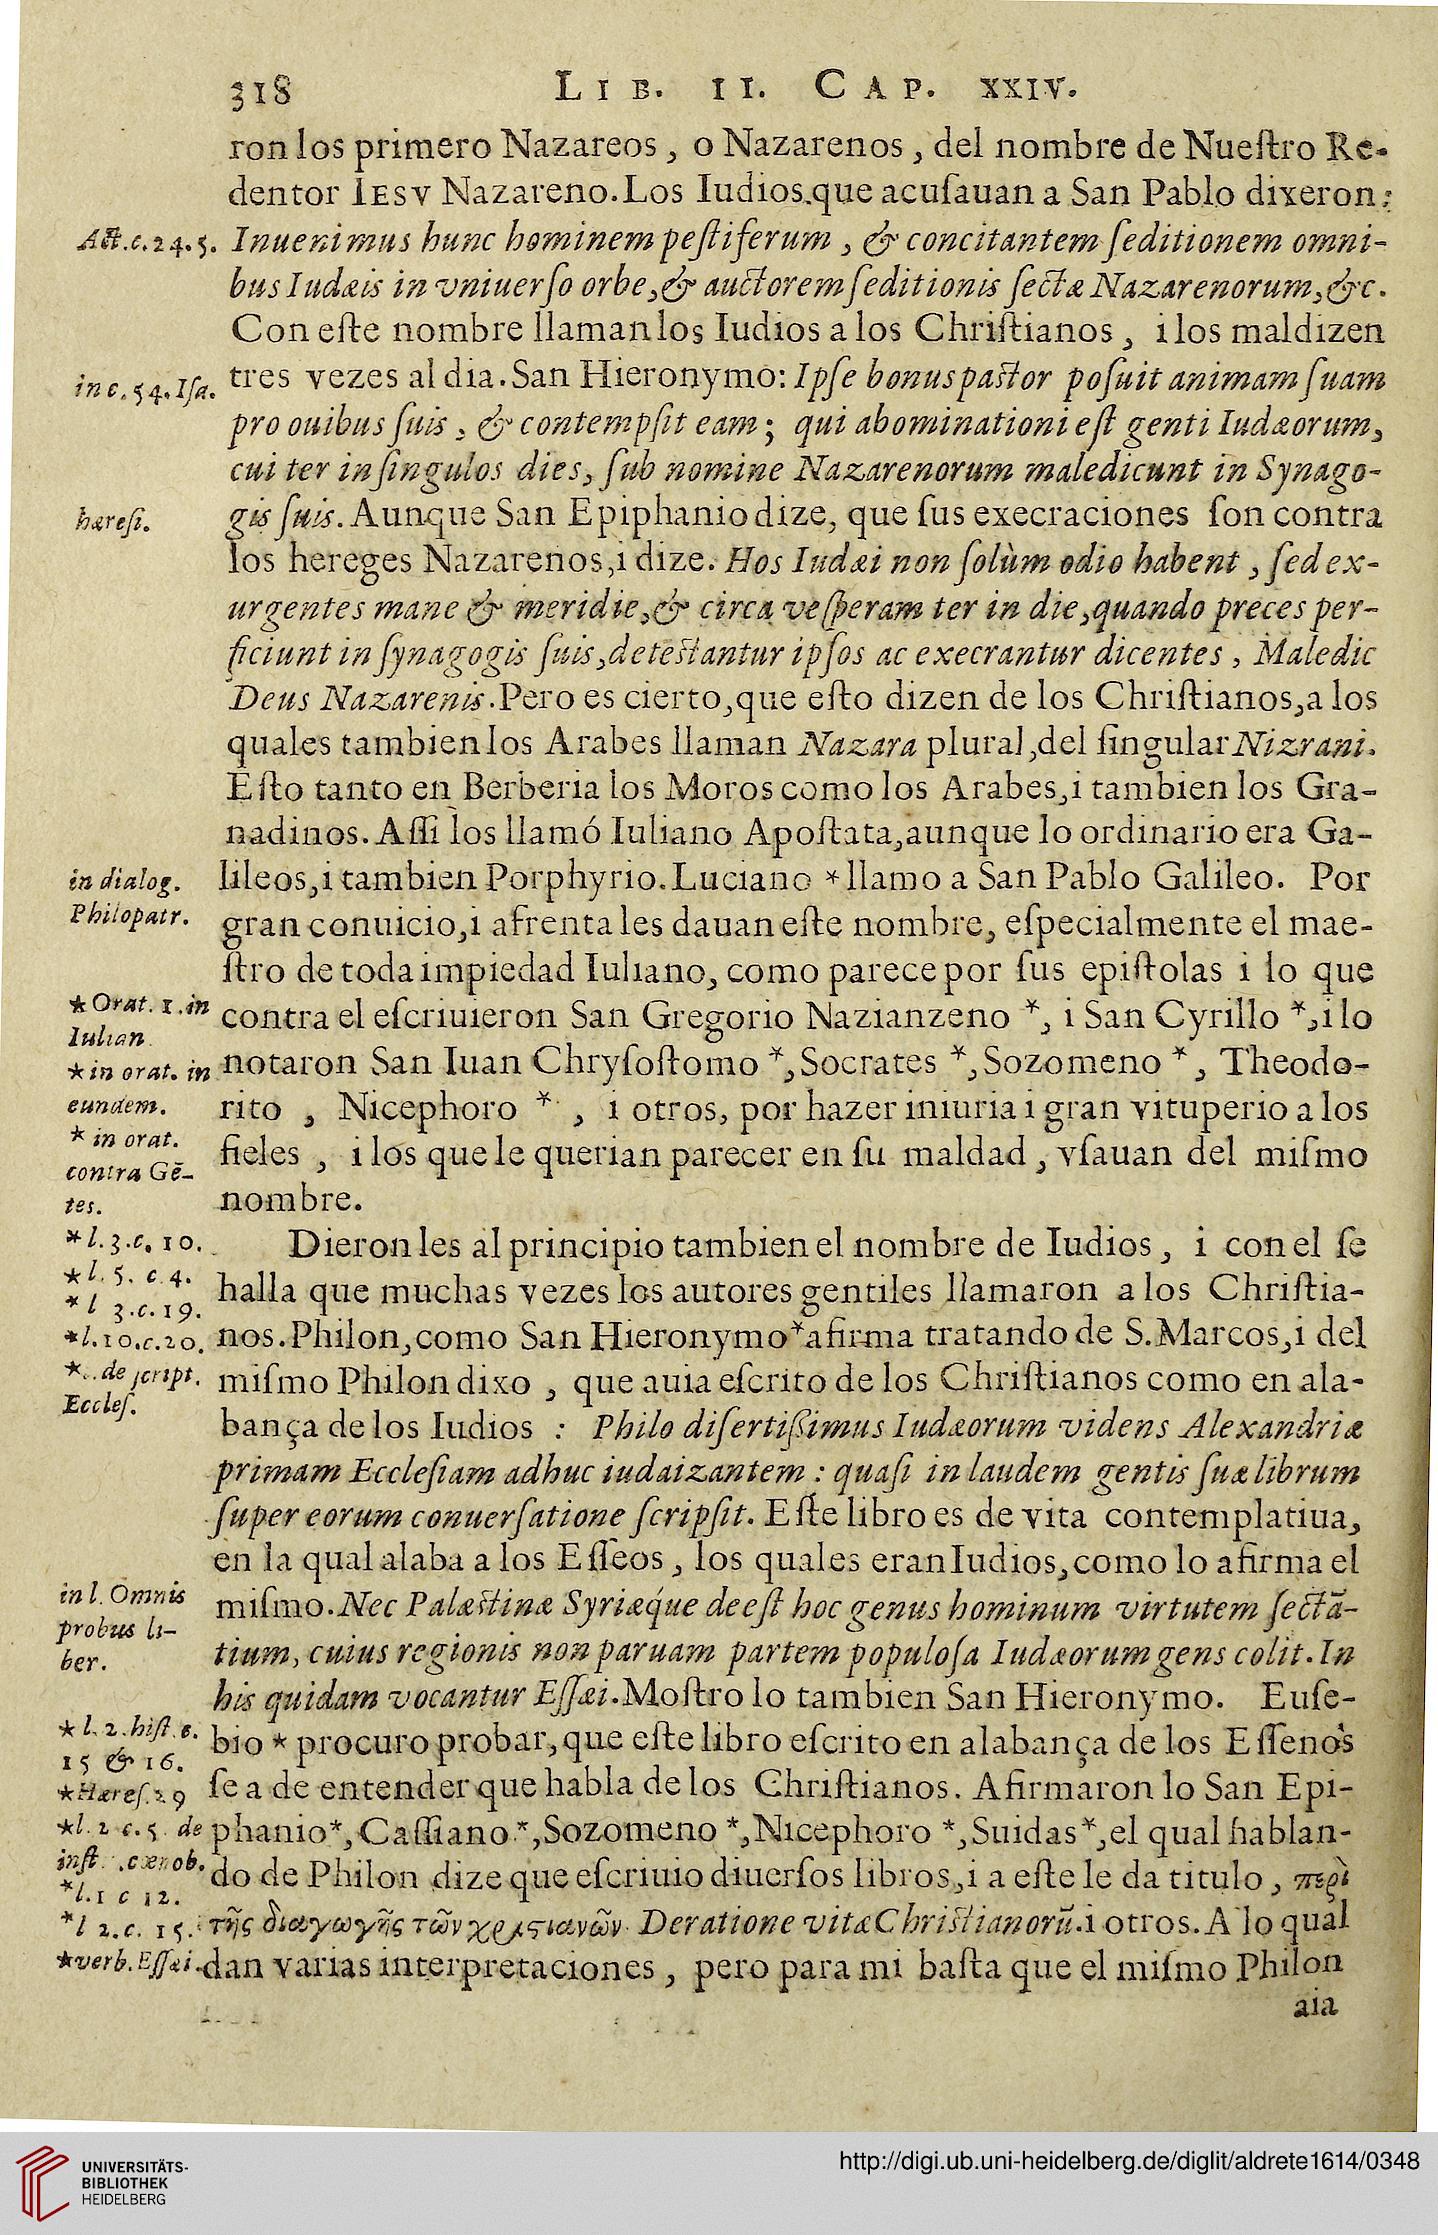 318 LIB. II. CAP. XXIV.
ron los primero Nazareos, o Nazarenos, del nombre de Nueſtro Re-
dentor IESV Nazareno. Los Iudios.que acuſauan a San Pablo dixeron:
Act.c.24.5.
Inuenimus hunc hominem peſtiferum, & concitantem ſeditionem omni-
bus Iudæis in vniuerſo orbe,& auctorem ſeditionis ſectæ Nazarenorum,&c.
Con eſte nombre llaman los Iudios a los Chriſtianos, i los maldizen
in c.54.Iſa.
tres vezes al dia. San Hieronymo: Ipſe bonus paſtor poſuit animam ſuam
pro ouibus ſuis, & contempſit eam; qui abominationi eſt genti Iudæorum,
cui ter in ſingulos dies, ſub nomine Nazarenorum maledicunt in Synago-
hæreſi.
gis ſuis. Aunque San Epiphanio dize, que ſus execraciones ſon contra
los hereges Nazarenos,i dize. Hos Iudæi non ſolùm odio habent, ſed ex-
urgentes mane & meridie,& circa veſperam ter in die,quando preces per-
ficiunt in ſynagogis ſuis,deteſtantur ipſos ac execrantur dicentes, Maledic
Deus Nazarenis. Pero es cierto,que eſto dizen de los Chriſtianos,a los
quales tambien los Arabes llaman Nazara plural,del ſingular Nizrani.
Eſto tanto en Berberia los Moros como los Arabes,i tambien los Gra-
nadinos. Aſſi los llamó Iuliano Apoſtata,aunque lo ordinario era Ga-
in dialog.
Philopatr.
lileos,i tambien Porphyrio. Luciano * llamo a San Pablo Galileo. Por
gran conuicio,i afrenta les dauan eſte nombre, eſpecialmente el mae-
ſtro de toda impiedad Iuliano, como parece por ſus epiſtolas i lo que
*Orat. 1.in
Iulian.
contra el eſcriuieron San Gregorio Nazianzeno *, i San Cyrillo *,i lo
*in orat. in
eundem.
notaron San Iuan Chryſoſtomo *, Socrates *, Sozomeno *, Theodo-
rito, Nicephoro *, i otros, por hazer iniuria i gran vituperio a los
* in orat.
contra Gē-
tes.
fieles, i los que le querian parecer en ſu maldad, vſauan del miſmo
nombre.
*l.3.c. 10.
Dieron les al principio tambien el nombre de Iudios, i con el ſe
*l. 5. c 4.
* l 3.c.19.
halla que muchas vezes los autores gentiles llamaron a los Chriſtia-
*l.10.c.20.
nos. Philon,como San Hieronymo*afirma tratando de S. Marcos,i del
*..de ſcript.
Eccleſ.
miſmo Philon dixo, que auia eſcrito de los Chriſtianos como en ala-
bança de los Iudios : Philo diſertiſſimus Iudæorum videns Alexandriæ
primam Eccleſiam adhuc iudaizantem: quaſi in laudem gentis ſuæ librum
ſuper eorum conuerſatione ſcripſit. Eſte libro es de vita contemplatiua,
en la qual alaba a los Eſſeos, los quales eran Iudios,como lo afirma el
in l. Omnis
probus li-
ber.
miſmo. Nec Palæſtinæ Syriæq́ue deeſt hoc genus hominum virtutem ſectā-
tium, cuius regionis non paruam partem populoſa Iudæorum gens colit. In
his quidam vocantur Eſſæi. Moſtro lo tambien San Hieronymo. Euſe-
* l. 2.hiſt.c.
15 & 16.
bio * procuro probar, que eſte libro eſcrito en alabança de los Eſſenos
*Hæreſ.29
ſe a de entender que habla de los Chriſtianos. Afirmaron lo San Epi-
*l. 2 c.5. de
inſt. .cænob.
phanio*, Caſſiano *, Sozomeno *, Nicephoro *, Suidas*,el qual hablan-
*l.1 c 12.
do de Philon dize que eſcriuio diuerſos libros,i a eſte le da titulo, περὶ
*l 2.c. 15.
τῆς διαγωγῆς τῶν χριστιανῶν De ratione vitæ Chriſtianorū.i otros. A lo qual
*verb.Eſſæi.
dan varias interpretaciones, pero para mi baſta que el miſmo Philon
aia
UNIVERSITÄTS-
BIBLIOTHEK
HEIDELBERG
http://digi.ub.uni-heidelberg.de/diglit/aldrete1614/0348